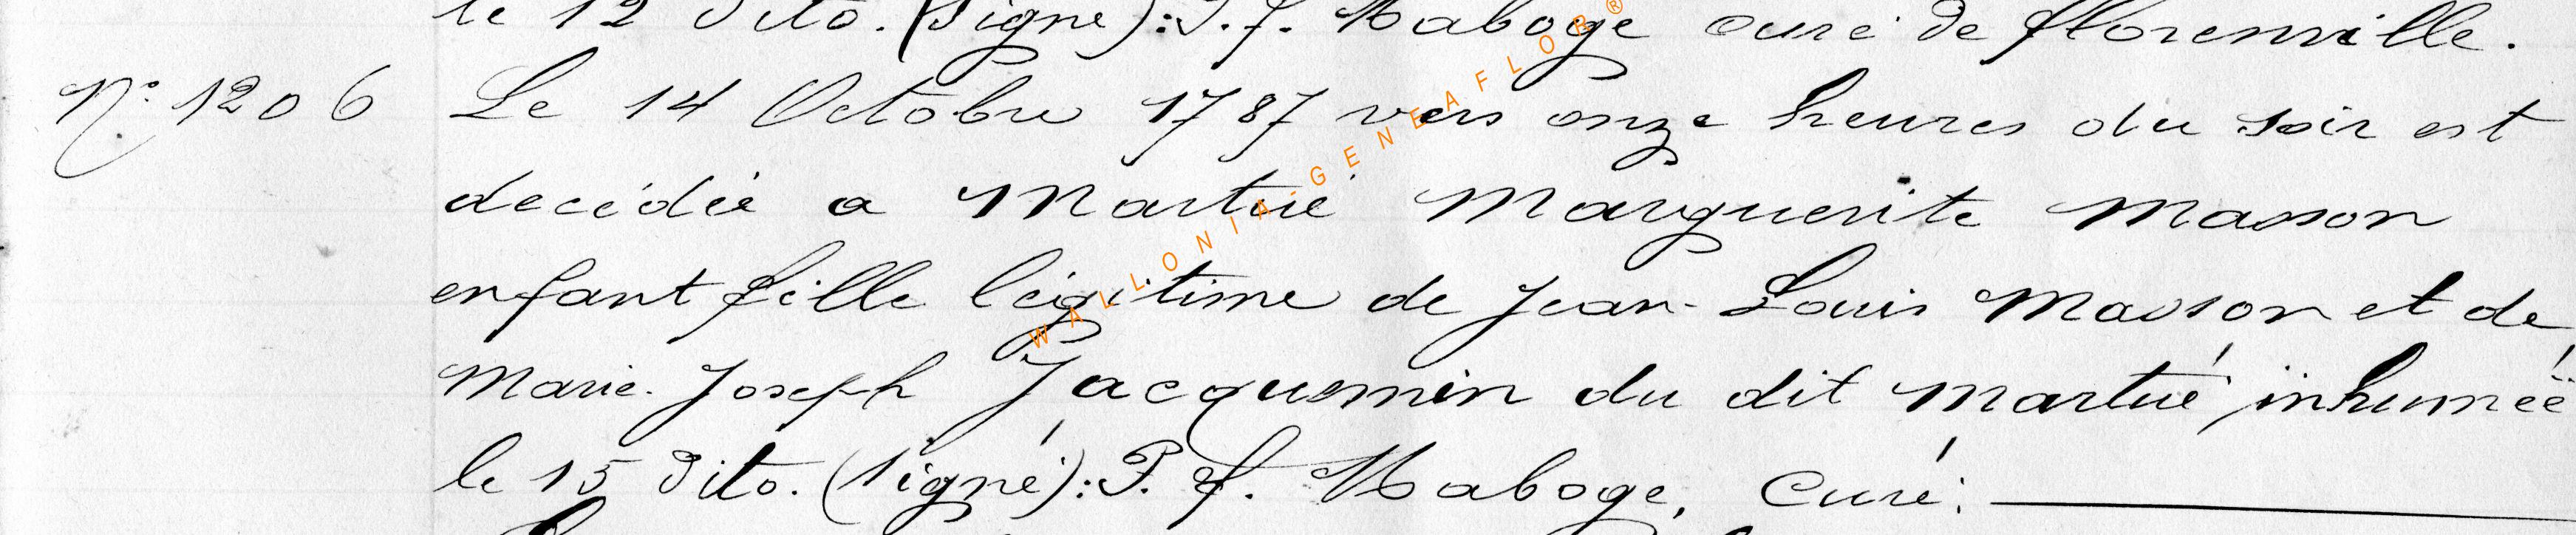 le 12 dito. (signé): P. f. Maboge curé de florenville.
N° 1206 Le 14 Octobre 1787 vers onze heures du soir est
decédée a Martué Marguerite Masson
enfant fille légitime de Jean-Louis Masson et de
Marie-Joseph Jacquemin du dit Martué, inhumée
le 15 dito. (signé): P. f. Maboge, Curé.
WALLONIA-GENEAFLOR®